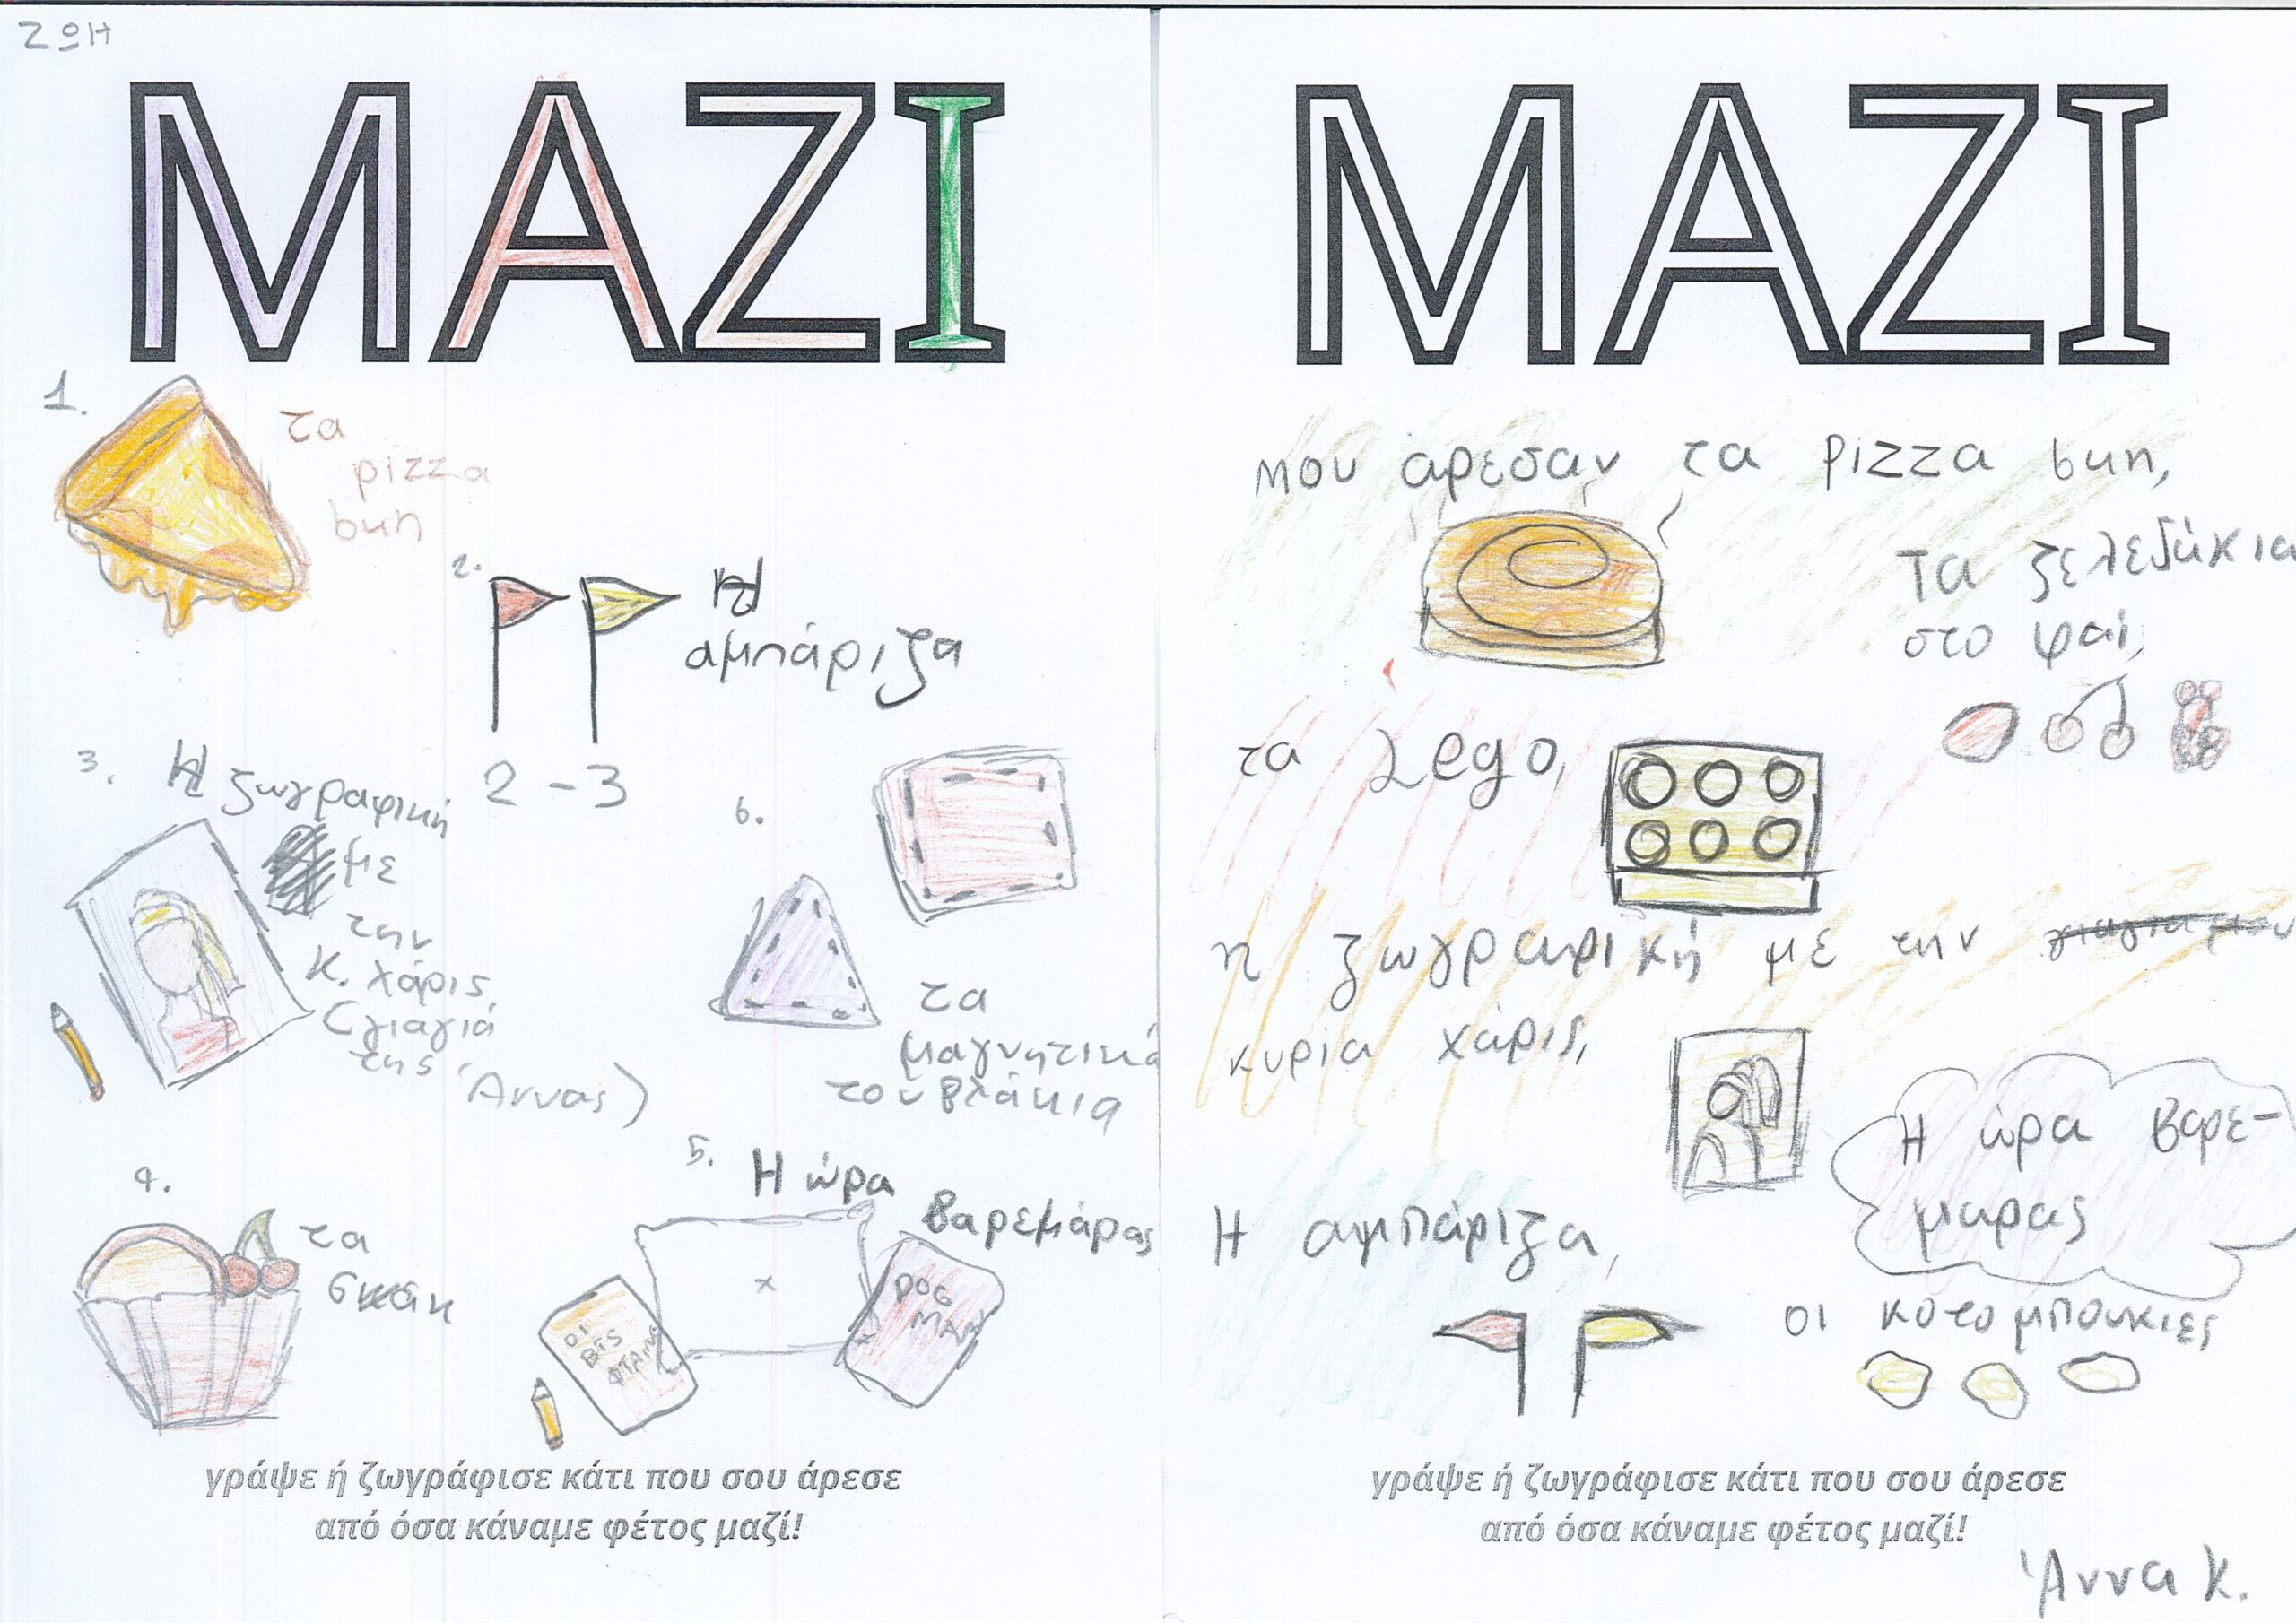 ΖΩΗ
ΜΑΖΙ
1.
τα
pizza
bun
2.
Η
αμπάριζα
2-3
3.
Η ζωγραφική
με
την
κ. χάρις
(γιαγιά
της Άννας)
6.
τα
μαγνητικά
τουβλάκια
4.
τα
σκακ
5.
Η ώρα
βαρεμάρας
ΟΙ
DOG
MAN
γράψε ή ζωγράφισε κάτι που σου άρεσε
από όσα κάναμε φέτος μαζί!
ΜΑΖΙ
μου άρεσαν τα pizza bun,
Τα ζελεδάκια
στο φαΐ,
τα Lego,
η ζωγραφική με την γιαγιά μου
κυρία χάρις,
Η ώρα βαρε-
μαρας
Η αμπάριζα,
οι κοτομπουκιες
γράψε ή ζωγράφισε κάτι που σου άρεσε
από όσα κάναμε φέτος μαζί!
Άννα Κ.